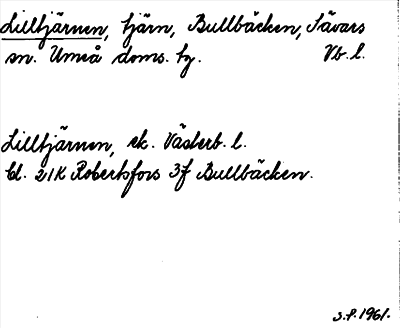 Lilltjärnen, tjärn, Bullbäcken, Sävars
sn. Umeå doms. tg. Vb. l.
Lilltjärnen, ek. Västerb. l.
bl. 21K Robertsfors 3f Bullbäcken.
S.P. 1961.